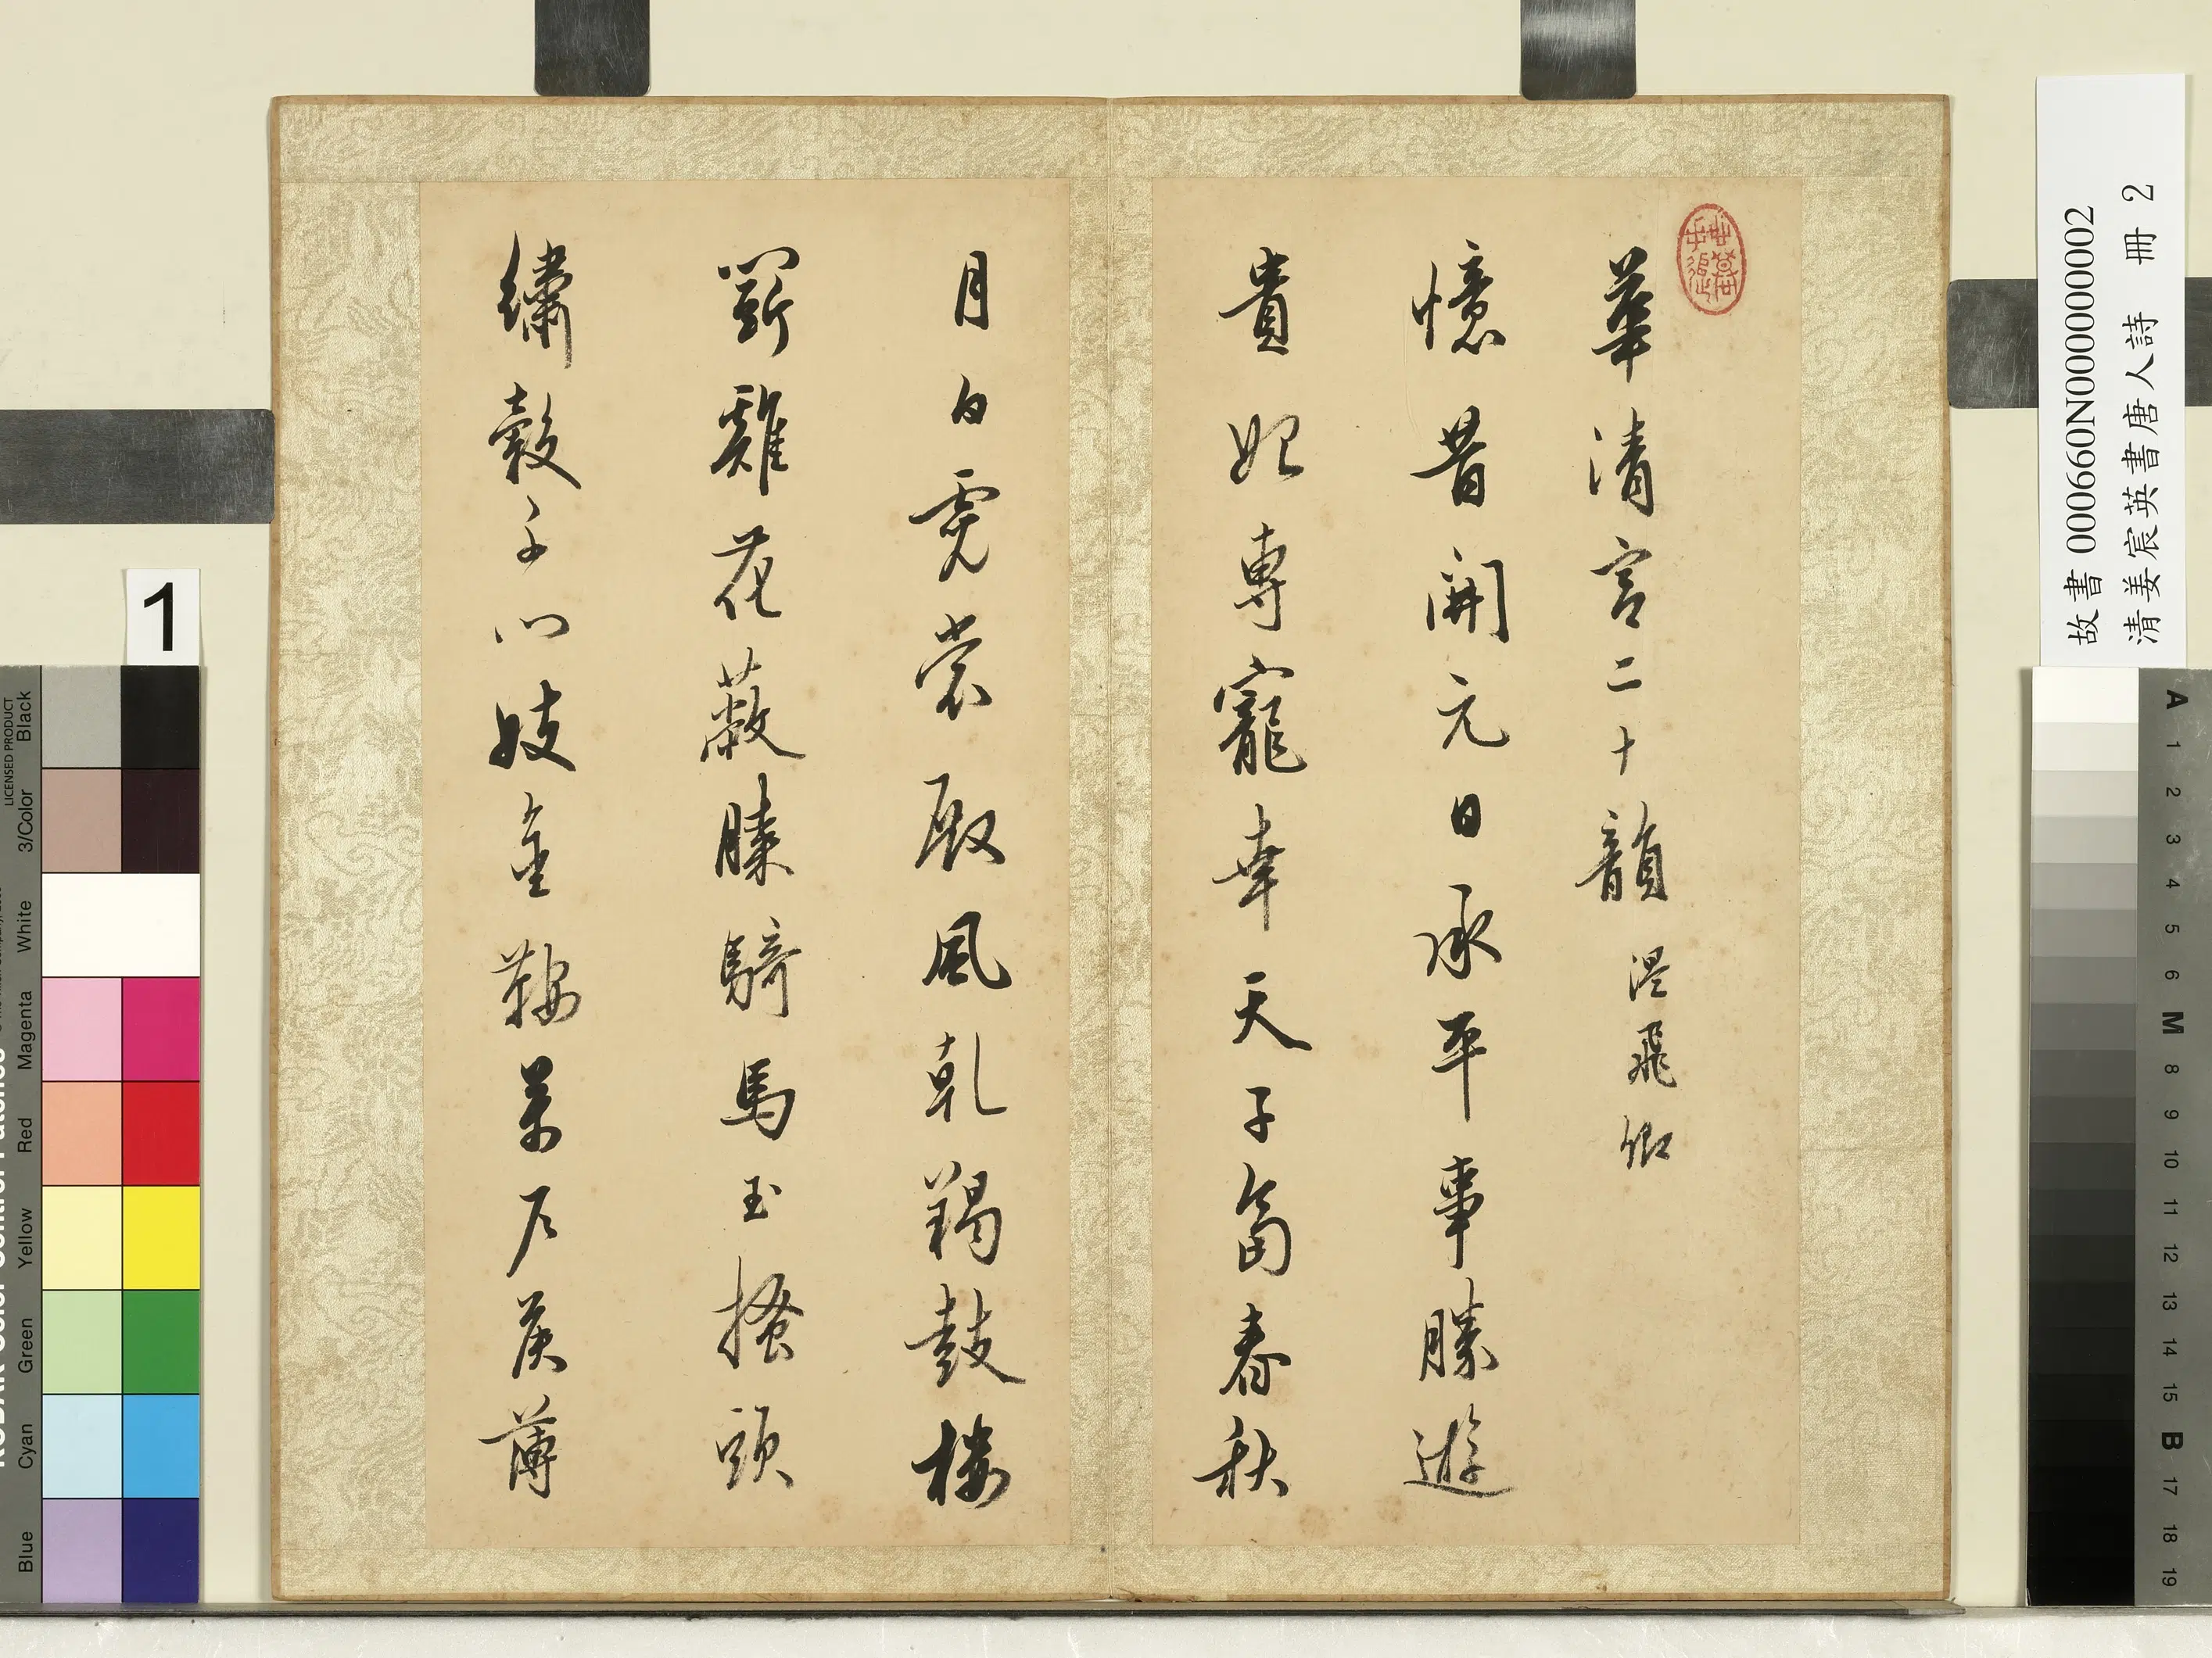 故書 000660N000000002
清姜宸英書唐人詩 冊 2
華清宮二十韻 溫飛卿
憶昔開元日承平事勝遊
貴妃專寵幸天子富春秋
月白霓裳殿風乾羯鼓樓
鬭雞花蔽膝騎馬玉搔頭
繡轂千門妓金鞍萬戶侯薄
1
LICENSED PRODUCT
Blue Cyan Green Yellow Red Magenta White 3/Color Black
A 1 2 3 4 5 6 M 8 9 10 11 12 13 14 15 B 17 18 19